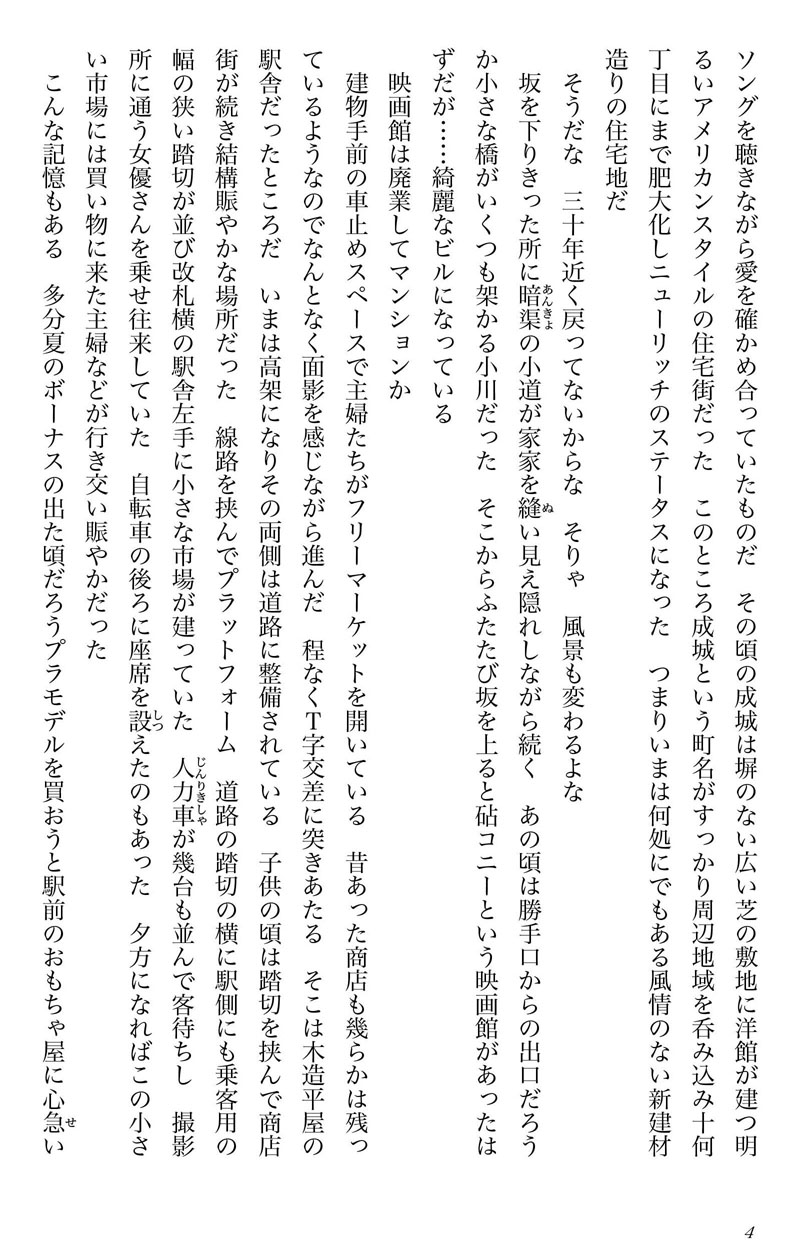 ソングを聴きながら愛を確かめ合っていたものだ　その頃の成城は塀のない広い芝の敷地に洋館が建つ明
るいアメリカンスタイルの住宅街だった　このところ成城という町名がすっかり周辺地域を呑み込み十何
丁目にまで肥大化しニューリッチのステータスになった　つまりいまは何処にでもある風情のない新建材
造りの住宅地だ
　そうだな　三十年近く戻ってないからな　そりゃ　風景も変わるよな
　坂を下りきった所に暗渠あんきょの小道が家家を縫ぬい見え隠れしながら続く　あの頃は勝手口からの出口だろう
か小さな橋がいくつも架かる小川だった　そこからふたたび坂を上ると砧コニーという映画館があったは
ずだが……綺麗なビルになっている
　映画館は廃業してマンションか
　建物手前の車止めスペースで主婦たちがフリーマーケットを開いている　昔あった商店も幾らかは残っ
ているようなのでなんとなく面影を感じながら進んだ　程なくＴ字交差に突きあたる　そこは木造平屋の
駅舎だったところだ　いまは高架になりその両側は道路に整備されている　子供の頃は踏切を挟んで商店
街が続き結構賑やかな場所だった　線路を挟んでプラットフォーム　道路の踏切の横に駅側にも乗客用の
幅の狭い踏切が並び改札横の駅舎左手に小さな市場が建っていた　人力車じんりきしゃが幾台も並んで客待ちし　撮影
所に通う女優さんを乗せ往来していた　自転車の後ろに座席を設しつえたのもあった　夕方になればこの小さ
い市場には買い物に来た主婦などが行き交い賑やかだった
　こんな記憶もある　多分夏のボーナスの出た頃だろうプラモデルを買おうと駅前のおもちゃ屋に心急せい
4